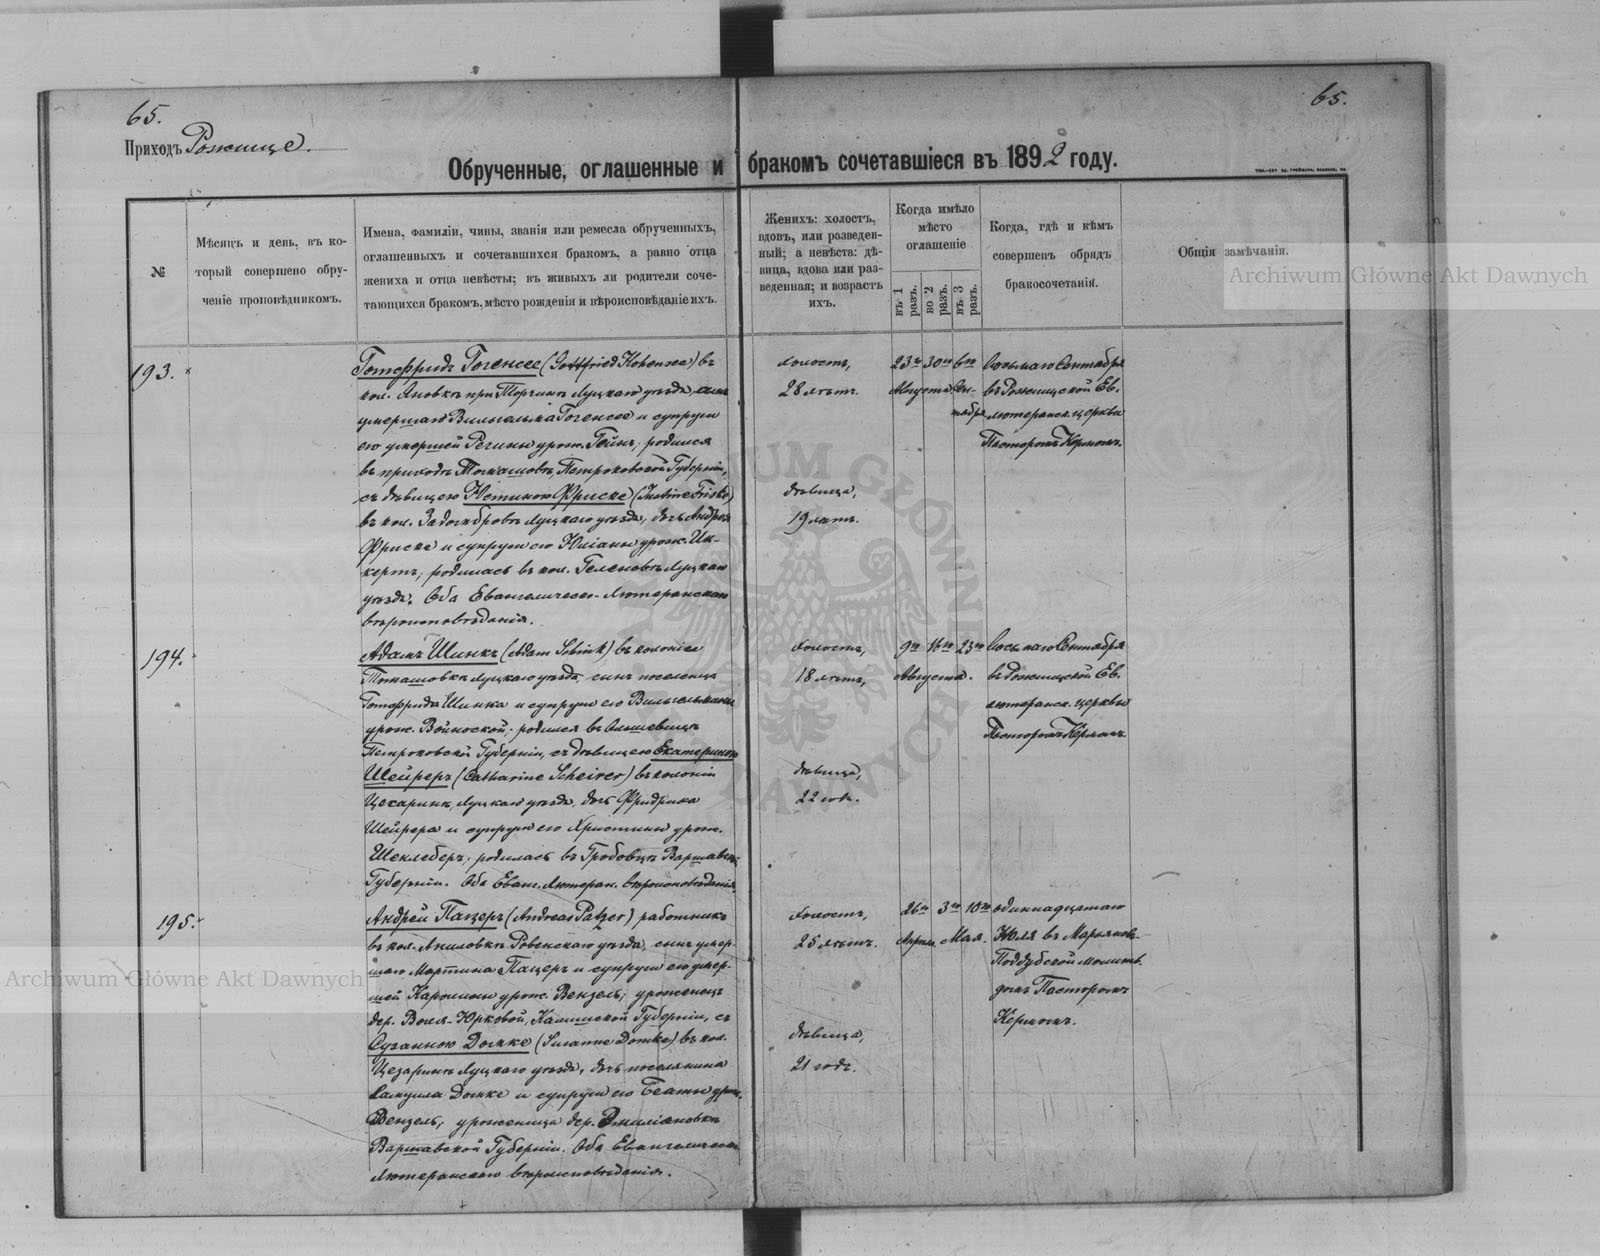 65.
65.
Приходъ Рожище.
Обрученные, оглашенные и бракомъ сочетавшіеся въ 1892 году.
№
Мѣсяцъ и день, въ ко-
торый совершено обру-
ченіе проповѣдникомъ.
Имена, фамиліи, чины, званія или ремесла обрученныхъ,
оглашенныхъ и сочетавшихся бракомъ, а равно отца
жениха и отца невѣсты; въ живыхъ ли родители соче-
тающихся бракомъ, мѣсто рожденія и вѣроисповѣданіе ихъ.
Женихъ: холостъ,
вдовъ, или разведен-
ный; а невѣста: дѣ-
вица, вдова или раз-
веденная; и возрастъ
ихъ.
Когда имѣло
мѣсто
оглашеніе
въ 1 разъ.
во 2 разъ.
въ 3 разъ.
Когда, гдѣ и кѣмъ
совершенъ обрядъ
бракосочетанія.
Общія замѣчанія.
Archiwum Główne Akt Dawnych
193.
Готфридъ Гогензее (Gottfried Hohensee) въ
кол. Яновкѣ при Торчинѣ Луцкаго уѣзда, сынъ
умершаго Вильгельма Гогензее и супруги
его умершей Регины урож. Гейнъ; родился
въ приходѣ Томашовъ, Петроковской Губерніи,
съ дѣвицею Юстиною Фриске (Justine Friske)
въ кол. Луцкаго уѣзда, дочь Андрея
Фриске и супруги его Юліаны урож. Ик-
кертъ; родилась въ кол. Геленовкѣ Луцкаго
уѣзда. Оба Евангелическо-Лютеранскаго
вѣроисповѣданія.
холостъ,
28 лѣтъ.
дѣвица,
19 лѣтъ.
23го 30го 6го
Августа Сен-
тября
Восьмаго Сентября
въ Рожищской Ев.
лютеранск. церкви
Пасторомъ Керномъ.
194.
Адамъ Шинкъ (Adam Schink) въ колоніи
Томашовкѣ Луцкаго уѣзда, сынъ поселенца
Готфрида Шинка и супруги его Вильгельмины
урож. родился въ
Петроковской Губерніи, съ дѣвицею Екатериною
Шейреръ (Catharine Scheirer) въ колоніи
Цезаринъ, Луцкаго уѣзда, дочь Фридриха
Шейрера и супруги его Христины урож.
Шеклеберъ; родилась въ Варшавск.
Губерніи. Оба Еванг. Лютеран. вѣроисповѣданія.
холостъ,
18 лѣтъ,
дѣвица,
22 года.
9го 16го 23го
Августа.
Восьмаго Сентября
въ Рожищской Ев.
лютеранск. церкви
Пасторомъ Керномъ.
195.
Андрей Пацеръ (Andreas Patzer) работникъ
въ кол. Ровенскаго уѣзда, сынъ умер-
шаго Мартина Пацеръ и супруги его умер-
шей Каролины урож. Вензель; уроженецъ
дер. Воля-Юрковой, Калишской Губерніи, съ
Сузанною Домке (Susanne Domke) въ кол.
Цезаринъ Луцкаго уѣзда, дочь поселянина
Самуила Домке и супруги его Беаты урож.
Вензель, уроженица дер. Эмиліановкѣ
Варшавской Губерніи. Оба Евангелическо
Лютеранскаго вѣроисповѣданія.
холостъ,
25 лѣтъ.
дѣвица,
21 годъ.
26го 3го 10го
Апрѣл. Мая.
одиннадцатаго
Юля въ Марьянов-
Поддубской молитв.
домѣ Пасторомъ
Керномъ.
Archiwum Główne Akt Dawnych